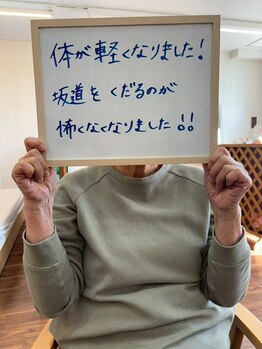 体が軽くなりました!
坂道をくだるのが
怖くなくなりました!!